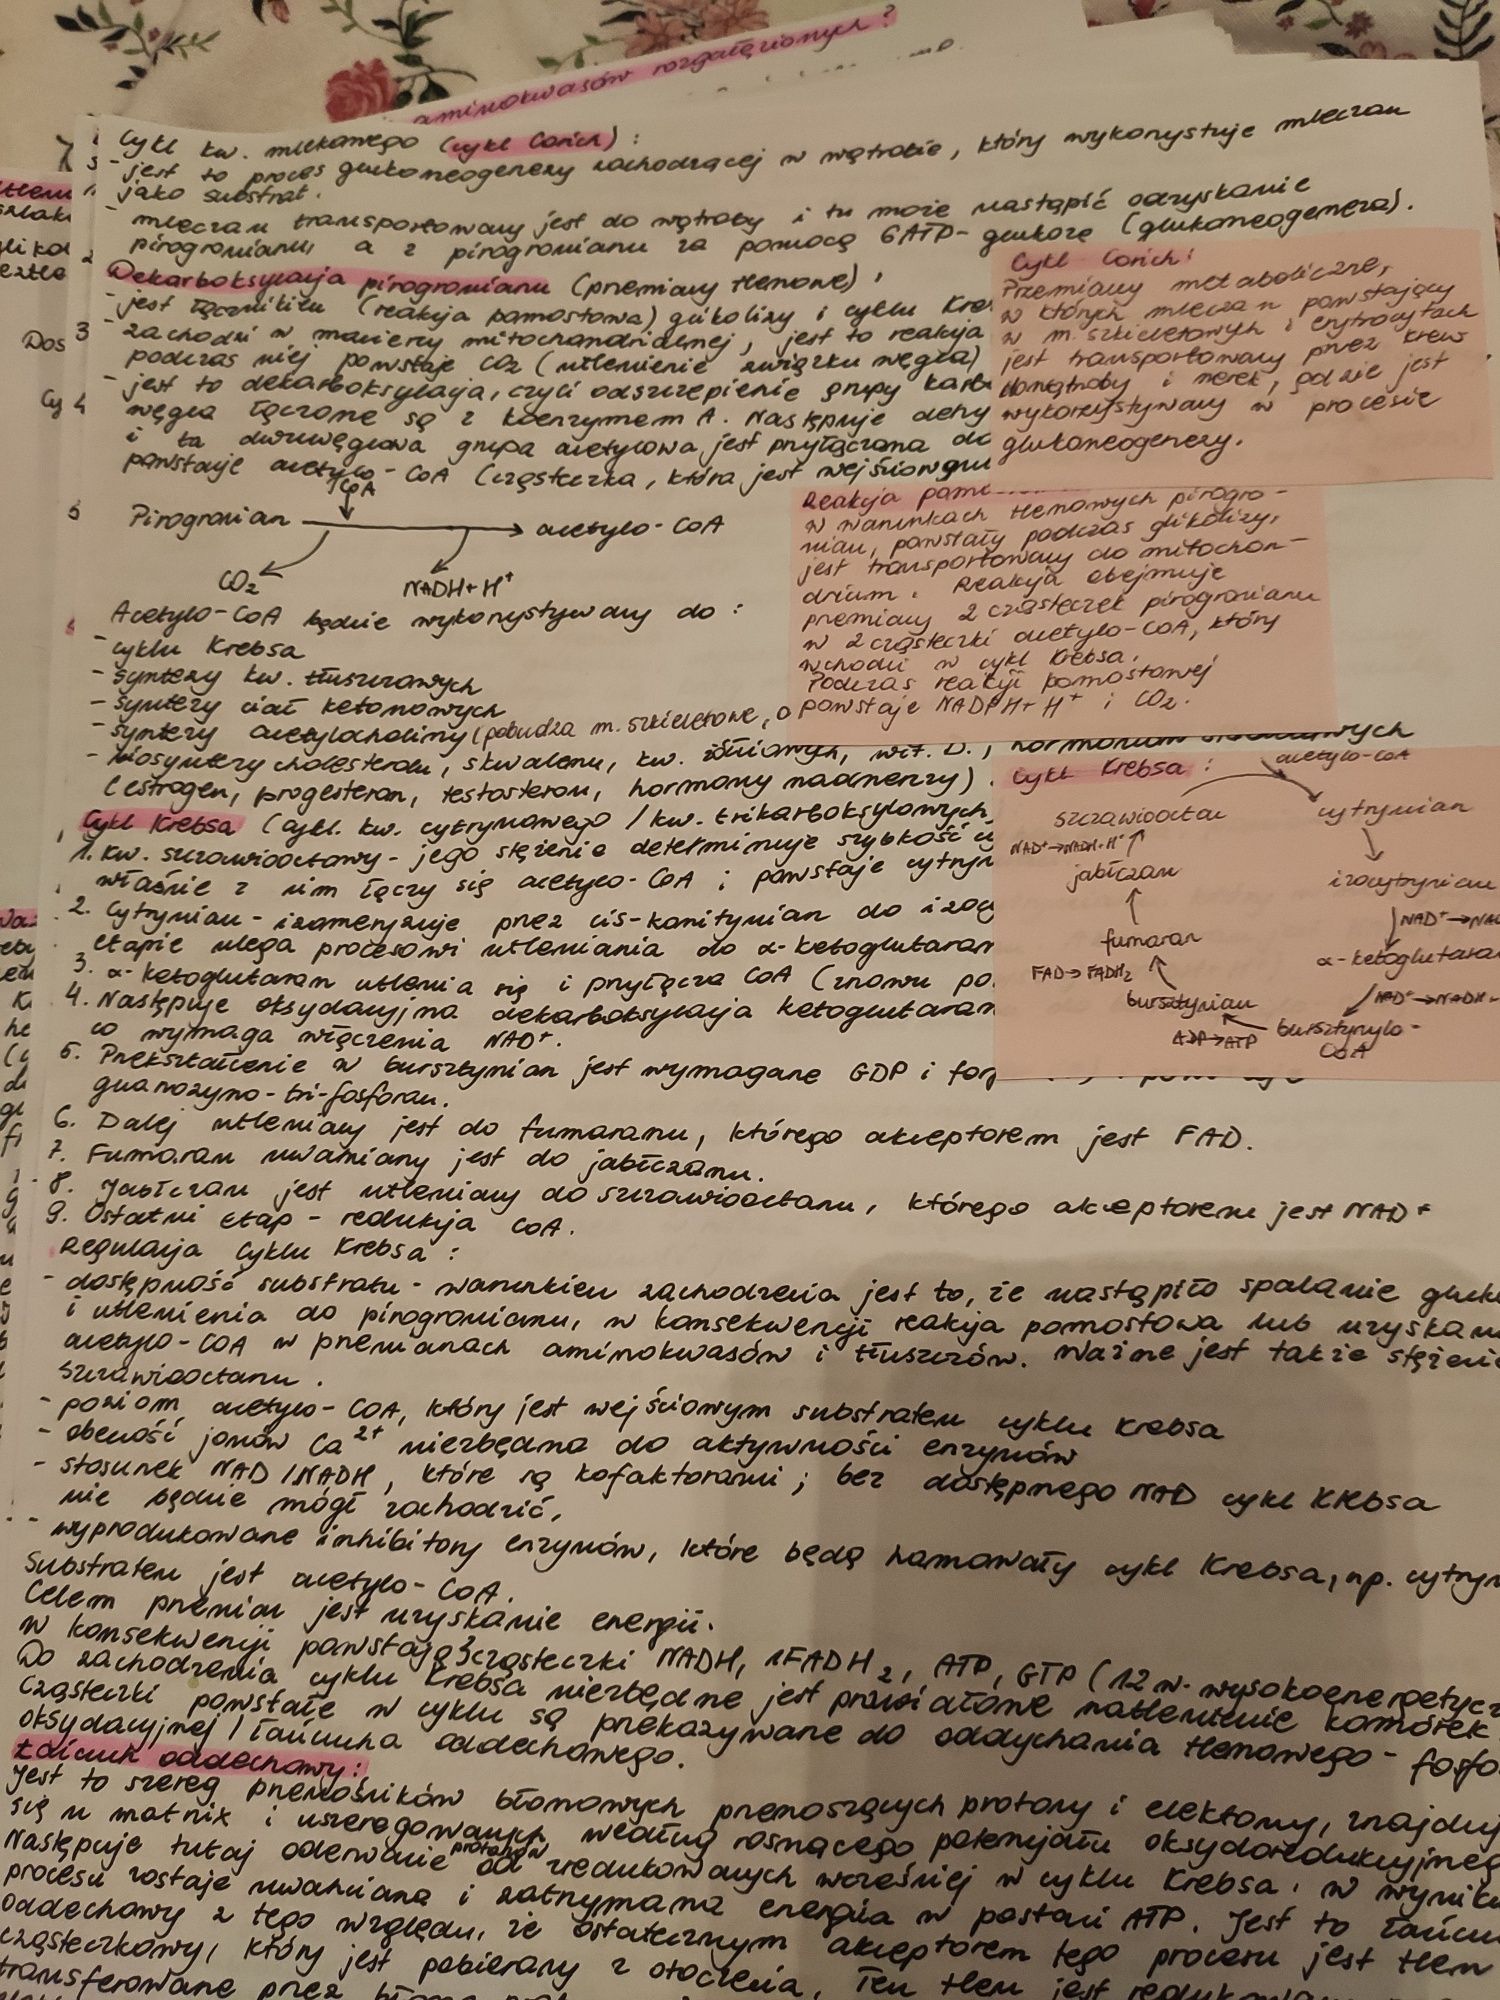 aminokwasów rozgałęzionych?
Cykl kw. mlekowego (cykl Corich):
- jest to proces glukoneogenezy zachodzącej w wątrobie, który wykorzystuje mleczan
jako substrat.
- mleczan transportowany jest do wątroby i tu może nastąpić odzyskanie
pirogronianu, a z pirogronianu za pomocą 6ATP - glukozę (glukoneogeneza).
Dekarboksylacja pirogronianu (przemiany tlenowe):
- jest łącznikiem (reakcja pomostowa) glikolizy i cyklu Kre
- zachodzi w macierzy mitochondrialnej, jest to reakcja
podczas niej powstaje CO2 (utlenienie związku węgla)
- jest to dekarboksylacja, czyli odszczepienie grupy karb
węgla łączone są z koenzymem A. Następuje dehy
i ta dwuwęglowa grupa acetylowa jest przyłączona do
powstaje acetylo-CoA (cząsteczka, która jest wejściowym
CoA
Pirogronian → acetylo-CoA
CO2 NADH+H+
Acetylo-CoA będzie wykorzystywany do:
- cyklu Krebsa
- syntezy kw. tłuszczowych
- syntezy ciał ketonowych
- syntezy acetylocholiny (pobudza m. szkieletowe,
- biosyntezy cholesterolu, skwalenu, kw. żółciowych, wit. D.,
(estrogen, progesteron, testosteron, hormony nadnerczy).
Cykl Krebsa (cykl. kw. cytrynowego / kw. trikarboksylowych
1. kw. szczawiooctowy - jego stężenie determinuje szybkość
właśnie z nim łączy się acetylo-CoA i powstaje cytryn
2. Cytrynian - izomeryzuje przez cis-konitynian do izocy
etapie ulega procesowi utleniania do α-ketoglutaran
3. α-ketoglutaran utlenia się i przyłącza CoA (znowu po
4. Następuje oksydacyjna dekarboksylacja ketoglutaran
co wymaga włączenia NAD+.
5. Przekształcenie w bursztynian jest wymagane GDP i
guanozyno-tri-fosforan.
6. Dalej utleniany jest do fumaranu, którego akceptorem jest FAD.
7. Fumaran uwadniany jest do jabłczanu.
8. Jabłczan jest utleniany do szczawiooctanu, którego akceptorem jest NAD+
9. Ostatni etap - redukcja CoA.
Regulacja cyklu Krebsa:
- dostępność substratu - warunkiem zachodzenia jest to, że nastąpiło spalanie gluko
i utlenienia do pirogronianu, w konsekwencji reakcja pomostowa lub uzyskani
acetylo-CoA w przemianach aminokwasów i tłuszczów. Ważne jest także stężenie
szczawiooctanu.
- poziom acetylo-CoA, który jest wejściowym substratem cyklu Krebsa
- obecność jonów Ca2+ niezbędna do aktywności enzymów
- stosunek NAD/NADH, które są kofaktorami; bez dostępnego NAD cykl Krebsa
nie będzie mógł zachodzić,
- wyprodukowane inhibitory enzymów, które będą hamowały cykl Krebsa, np. cytryn
Substratem jest acetylo-CoA.
Celem przemian jest uzyskanie energii.
W konsekwencji powstają 3 cząsteczki NADH, 1FADH2, ATP, GTP (12 w. wysokoenergetycz
Do zachodzenia cyklu Krebsa niezbędne jest prawidłowe natlenienie komórek.
Cząsteczki powstałe w cyklu są przekazywane do oddychania tlenowego - fosfo
oksydacyjnej / łańcucha oddechowego.
Łańcuch oddechowy:
Jest to szereg przenośników błonowych przenoszących protony i elektrony, znajduj
się w matrix i uszeregowanych według rosnącego potencjału oksydoredukcyjneg
Następuje tutaj oderwanie protonów od zredukowanych wcześniej w cyklu Krebsa. W wyniku
procesu zostaje uwalniana i zatrzymana energia w postaci ATP. Jest to łańcu
oddechowy z tego względu, że ostatecznym akceptorem tego procesu jest tlen
cząsteczkowy, który jest pobierany z otoczenia. Ten tlen jest
transferowane przez
Cykl Corich:
Przemiany metaboliczne,
w których mleczan powstający
w m. szkieletowych i erytrocytach
jest transportowany przez krew
do wątroby i nerek, gdzie jest
wykorzystywany w procesie
glukoneogenezy.
Reakcja pomo
w warunkach tlenowych pirogro-
nian, powstały podczas glikolizy,
jest transportowany do mitochon-
drium. Reakcja obejmuje
przemiany 2 cząsteczek pirogronianu
w 2 cząsteczki acetylo-CoA, który
wchodzi w cykl Krebsa.
Podczas reakcji pomostowej
powstaje NADPH+H+ i CO2.
Cykl Krebsa:
acetylo-CoA
szczawiooctan cytrynian
NAD+→NADH+H+
jabłczan izocytrynian
NAD+→NA
fumaran α-ketoglutara
FAD→FADH2 NAD+→NADH+
bursztynian bursztynylo-
ADP→ATP CoA